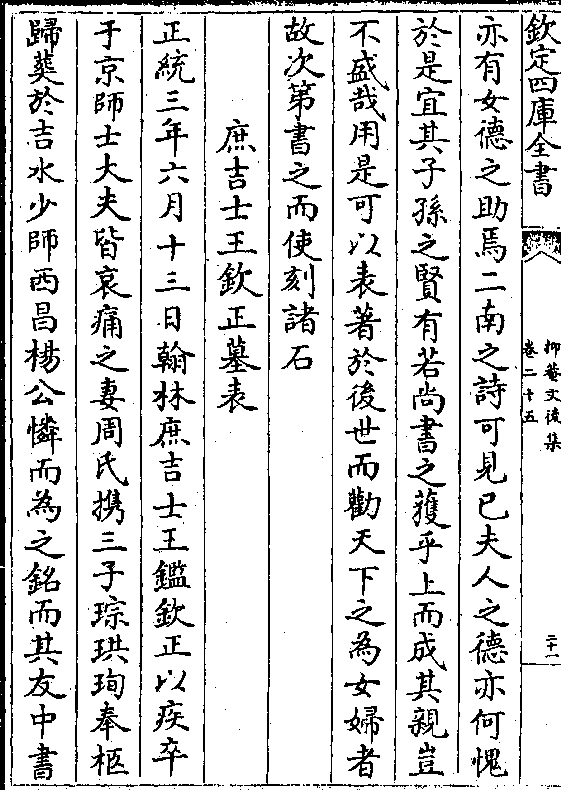 欽定四庫全書
抑菴文後集
卷二十五
二十一
亦有女德之助焉二南之詩可見已夫人之德亦何愧
於是宜其子孫之賢有若尚書之獲乎上而成其親豈
不盛哉用是可以表著於後世而勸天下之為女婦者
故次第書之而使刻諸石
庶吉士王欽正墓表
正統三年六月十三日翰林庶吉士王鑑欽正以疾卒
于京師士大夫皆哀痛之妻周氏携三子琮珙珣奉柩
歸葬於吉水少師西昌楊公憐而為之銘而其友中書